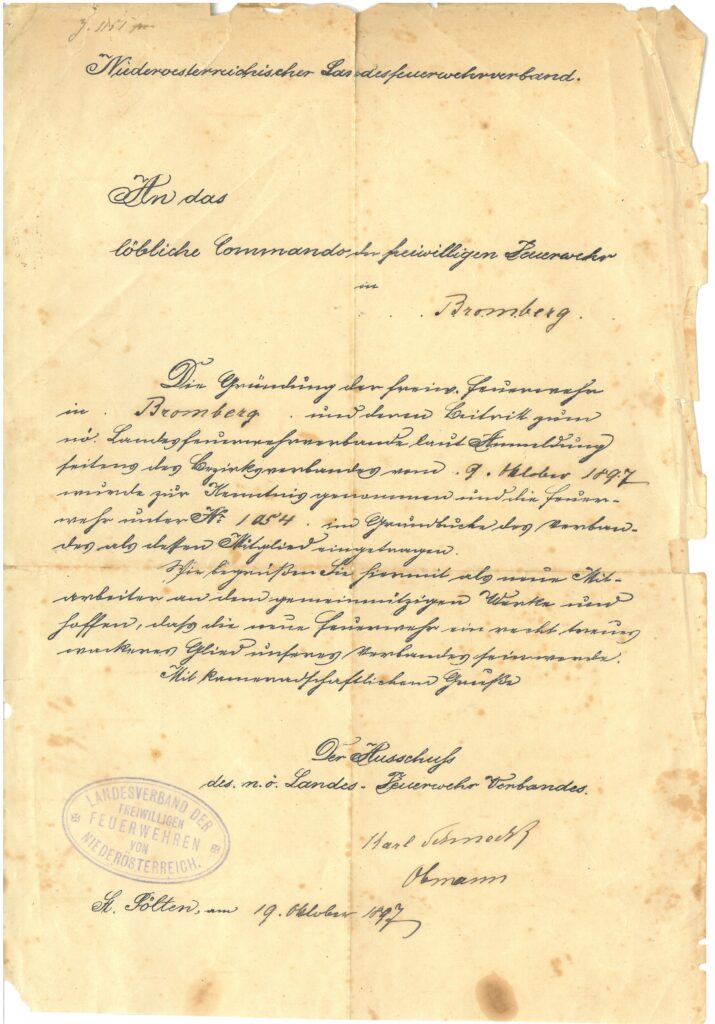 Niederoesterreichischer Landesfeuerwehrverband.
An das
löbliche Commando der freiwilligen Feuerwehr
in
Bromberg.
Die Gründung der freiw. Feuerwehr
in Bromberg und deren Beitritt zum
nö. Landesfeuerwehrverbande, laut Anmeldung
seitens des Bezirksverbandes vom 9. Oktober 1897
wurde zur Kenntnis genommen und die Feuer-
wehr unter No 1054 im Grundbuche des Verban-
des als dessen Mitglied eingetragen.
Wir begrüßen Sie hiermit als neue Mit-
arbeiter an dem gemeinnützigen Werke und
hoffen, daß die neue Feuerwehr ein recht treues
wackeres Glied unseres Verbandes sein werde.
Mit kameradschaftlichem Gruße
Der Ausschuß
des n. ö. Landes-Feuerwehr Verbandes.
LANDESVERBAND DER
FREIWILLIGEN
FEUERWEHREN
VON
NIEDERÖSTERREICH.
Karl
Obmann
St. Pölten, am 19. Oktober 1897